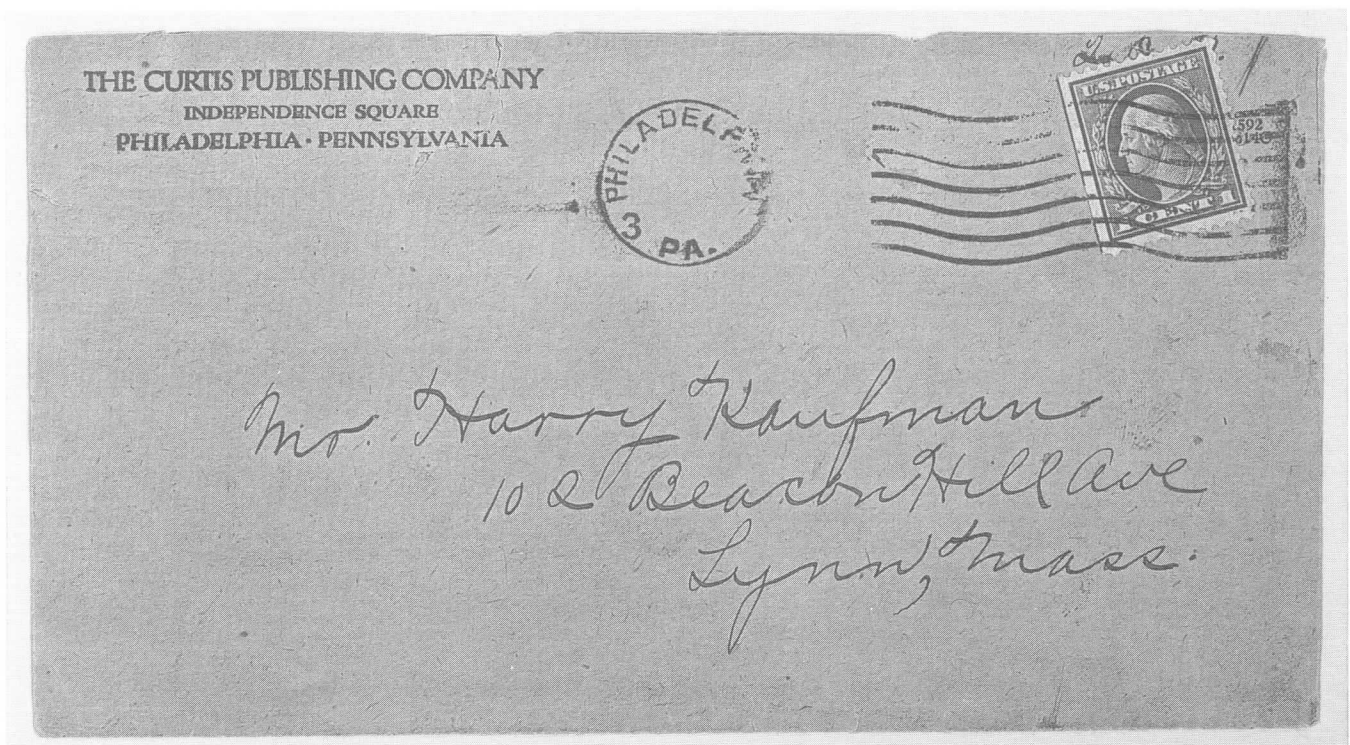 THE CURTIS PUBLISHING COMPANY
INDEPENDENCE SQUARE
PHILADELPHIA · PENNSYLVANIA
PHILADELPHIA
3
PA.
U.S. POSTAGE
592
Mr. Harry Kaufman
102 Beacon Hill Ave
Lynn, Mass.